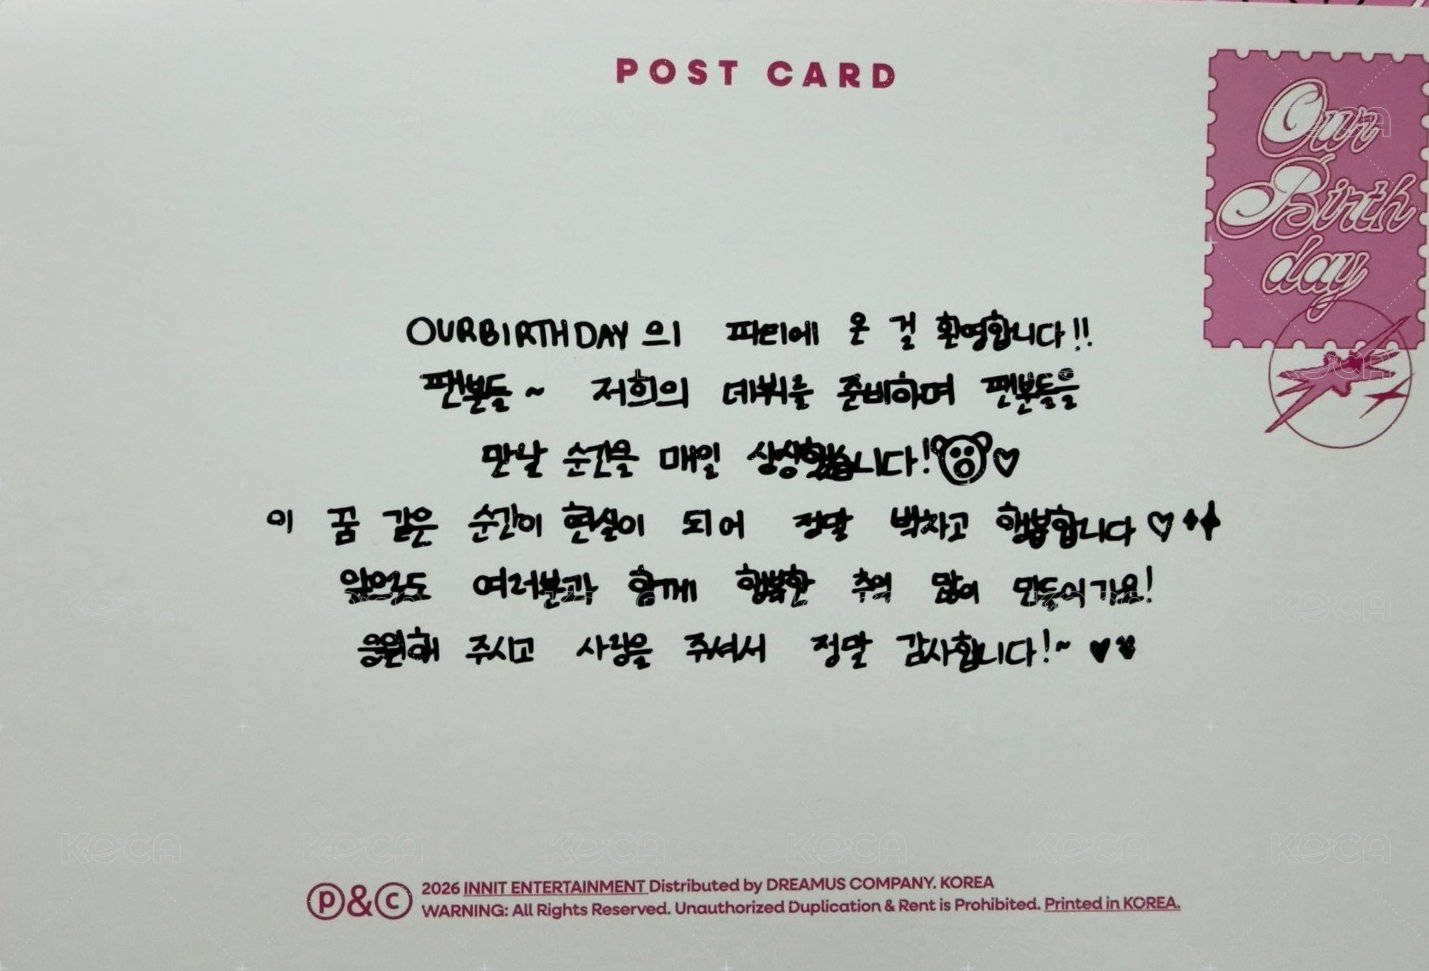 POST CARD
Our
Birth
day
OURBIRTHDAY 의 파티에 온 걸 환영합니다!!
팬분들~ 저희의 데뷔를 준비하며 팬분들을
만날 순간을 매일 상상했습니다!♡
이 꿈 같은 순간이 현실이 되어 정말 벅차고 행복합니다♡
앞으로도 여러분과 함께 행복한 추억 많이 만들어가요!
응원해 주시고 사랑을 주셔서 정말 감사합니다!~ ♥♥
Ⓟ&Ⓒ 2026 INNIT ENTERTAINMENT Distributed by DREAMUS COMPANY. KOREA
WARNING: All Rights Reserved. Unauthorized Duplication & Rent is Prohibited. Printed in KOREA.
KOCA KOCA KOCA KOCA KOCA KOCA